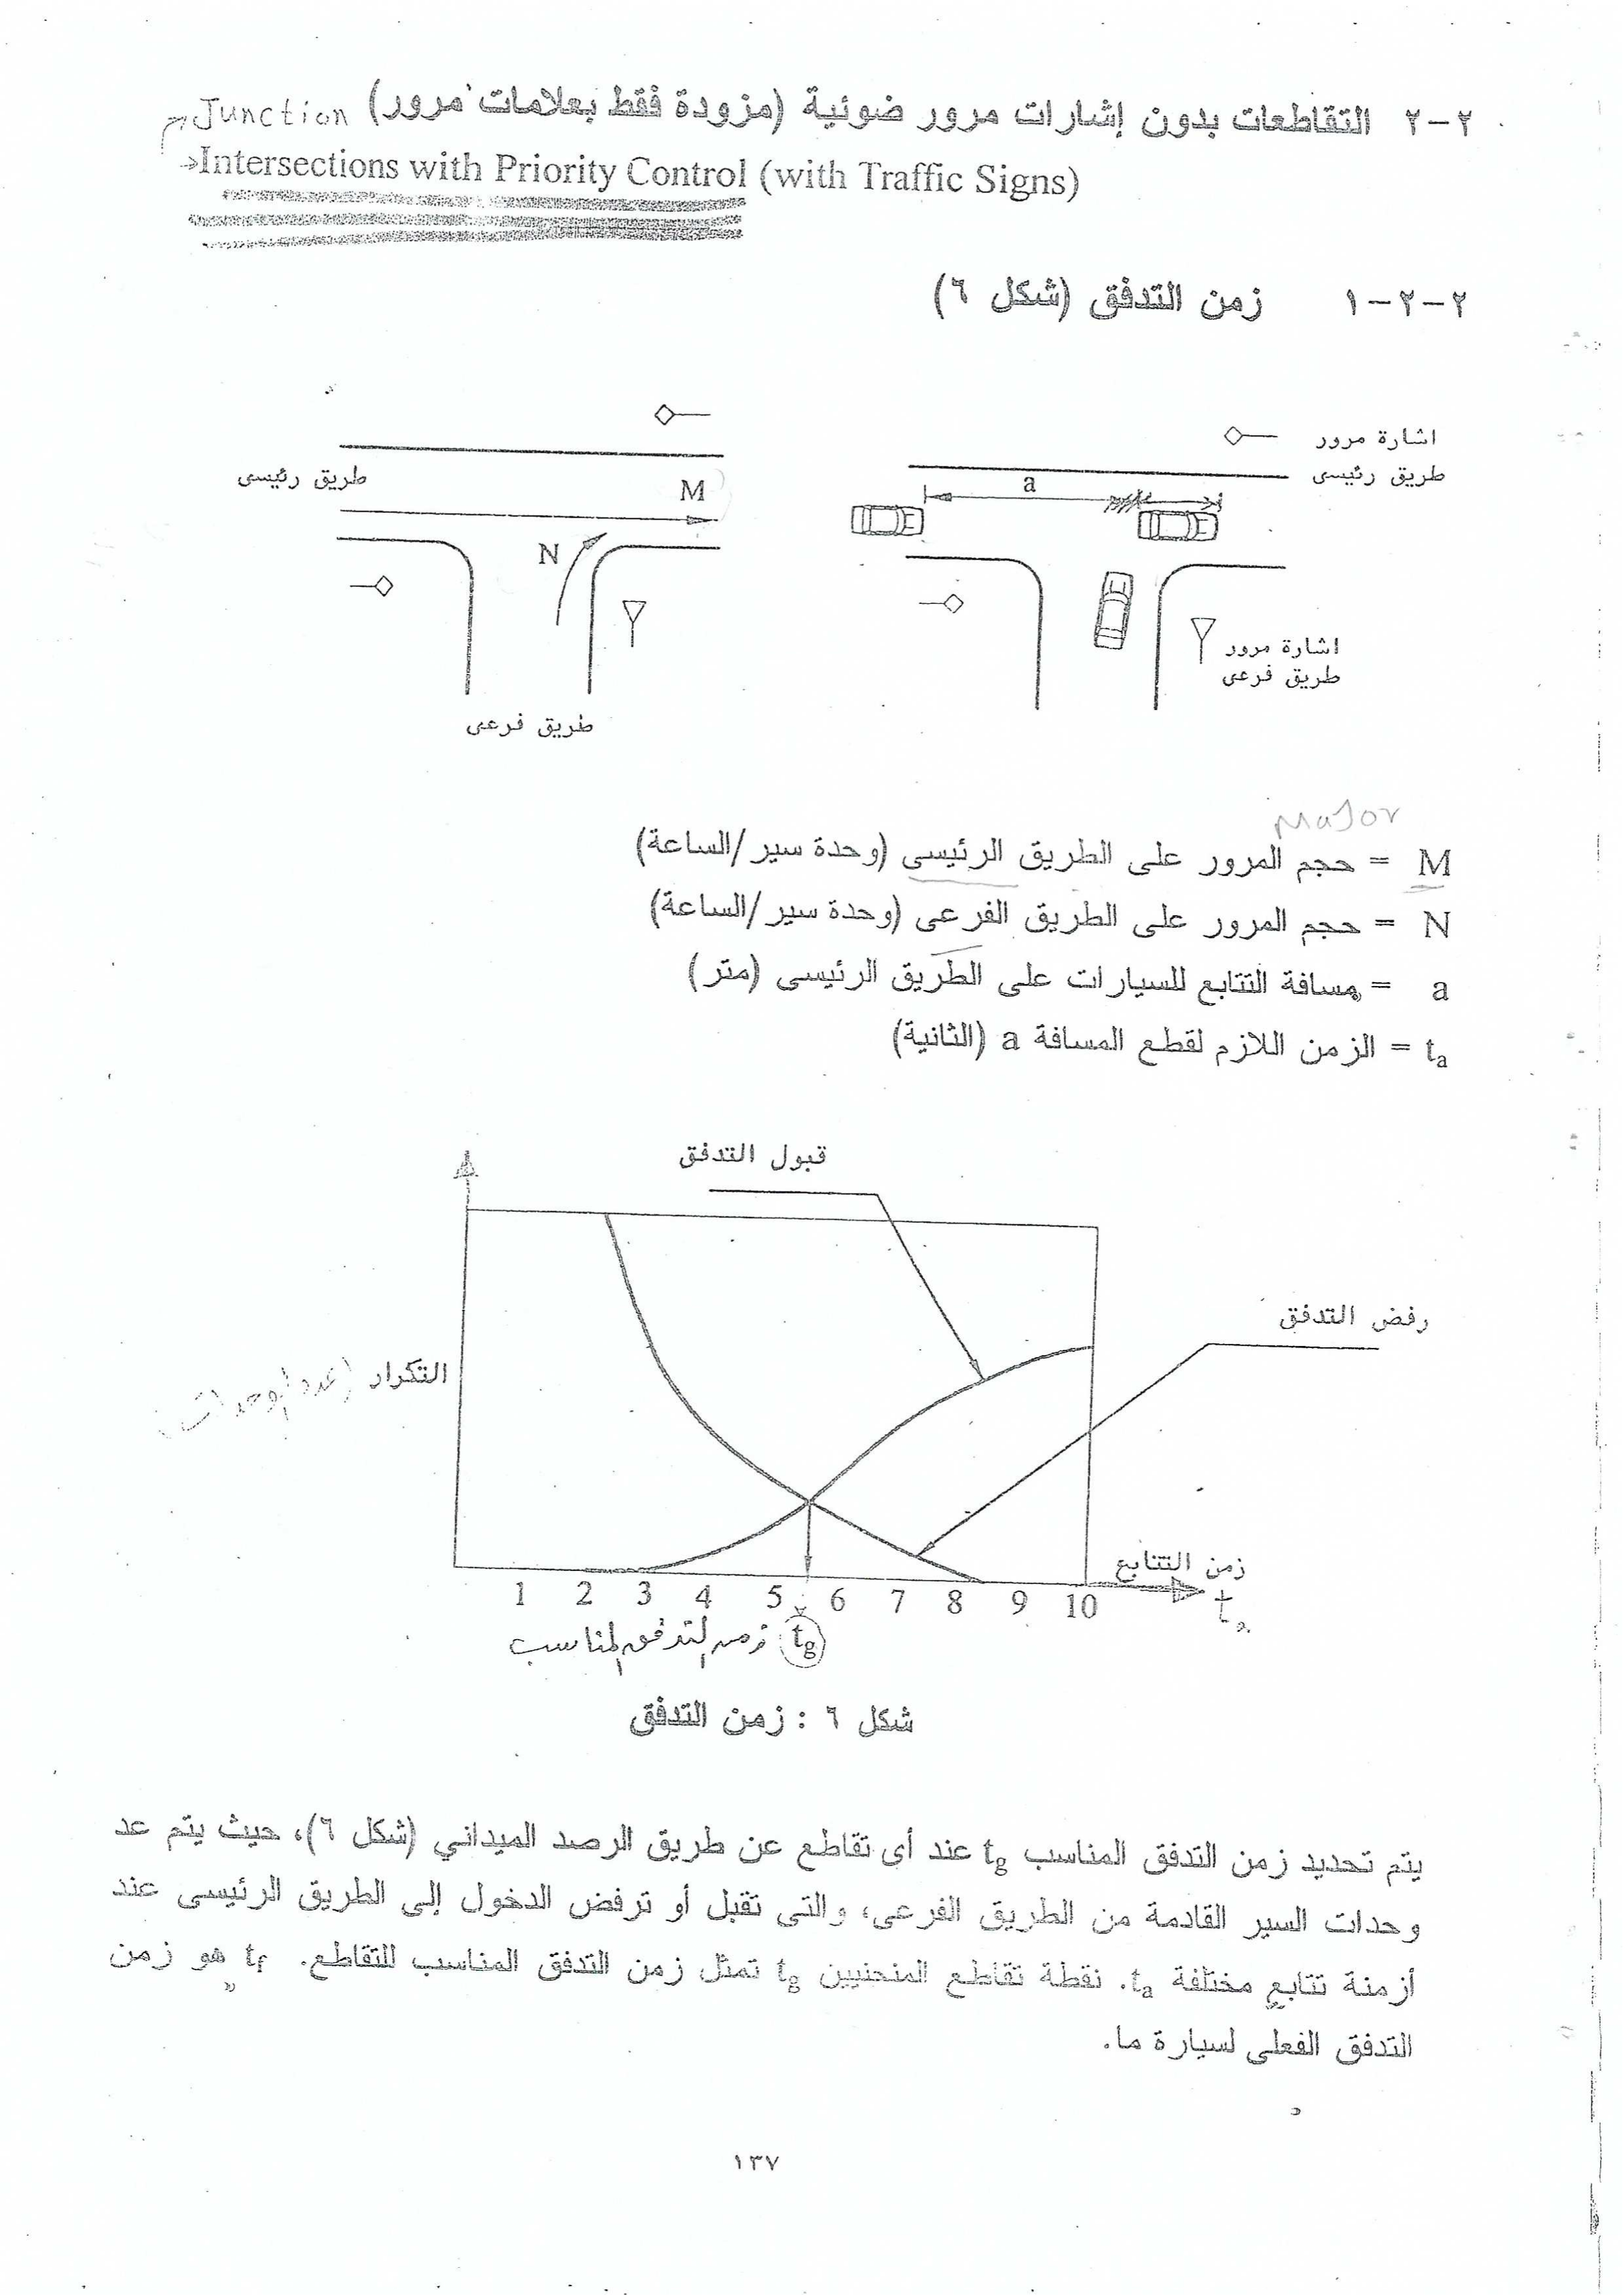 ٢-٢ التقاطعات بدون إشارات مرور ضوئية (مزودة فقط بعلامات مرور)
Junction
Intersections with Priority Control (with Traffic Signs)
٢-٢-١ زمن التدفق (شكل ٦)
اشارة مرور
طريق رئيسى
a
اشارة مرور
طريق فرعى
طريق رئيسى
M
N
طريق فرعى
major
M = حجم المرور على الطريق الرئيسى (وحدة سير/الساعة)
N = حجم المرور على الطريق الفرعى (وحدة سير/الساعة)
a = مسافة التتابع للسيارات على الطريق الرئيسى (متر)
ta = الزمن اللازم لقطع المسافة a (الثانية)
قبول التدفق
رفض التدفق
التكرار (عدد الوحدات)
زمن التتابع
1 2 3 4 5 6 7 8 9 10 ta
tg زمن التدفق المناسب
شكل ٦ : زمن التدفق
يتم تحديد زمن التدفق المناسب tg عند أى تقاطع عن طريق الرصد الميداني (شكل ٦)، حيث يتم عد
وحدات السير القادمة من الطريق الفرعى، والتى تقبل أو ترفض الدخول إلى الطريق الرئيسى عند
أزمنة تتابع مختلفة ta. نقطة تقاطع المنحنيين tg تمثل زمن التدفق المناسب للتقاطع. tf هو زمن
التدفق الفعلى لسيارة ما.
١٣٧